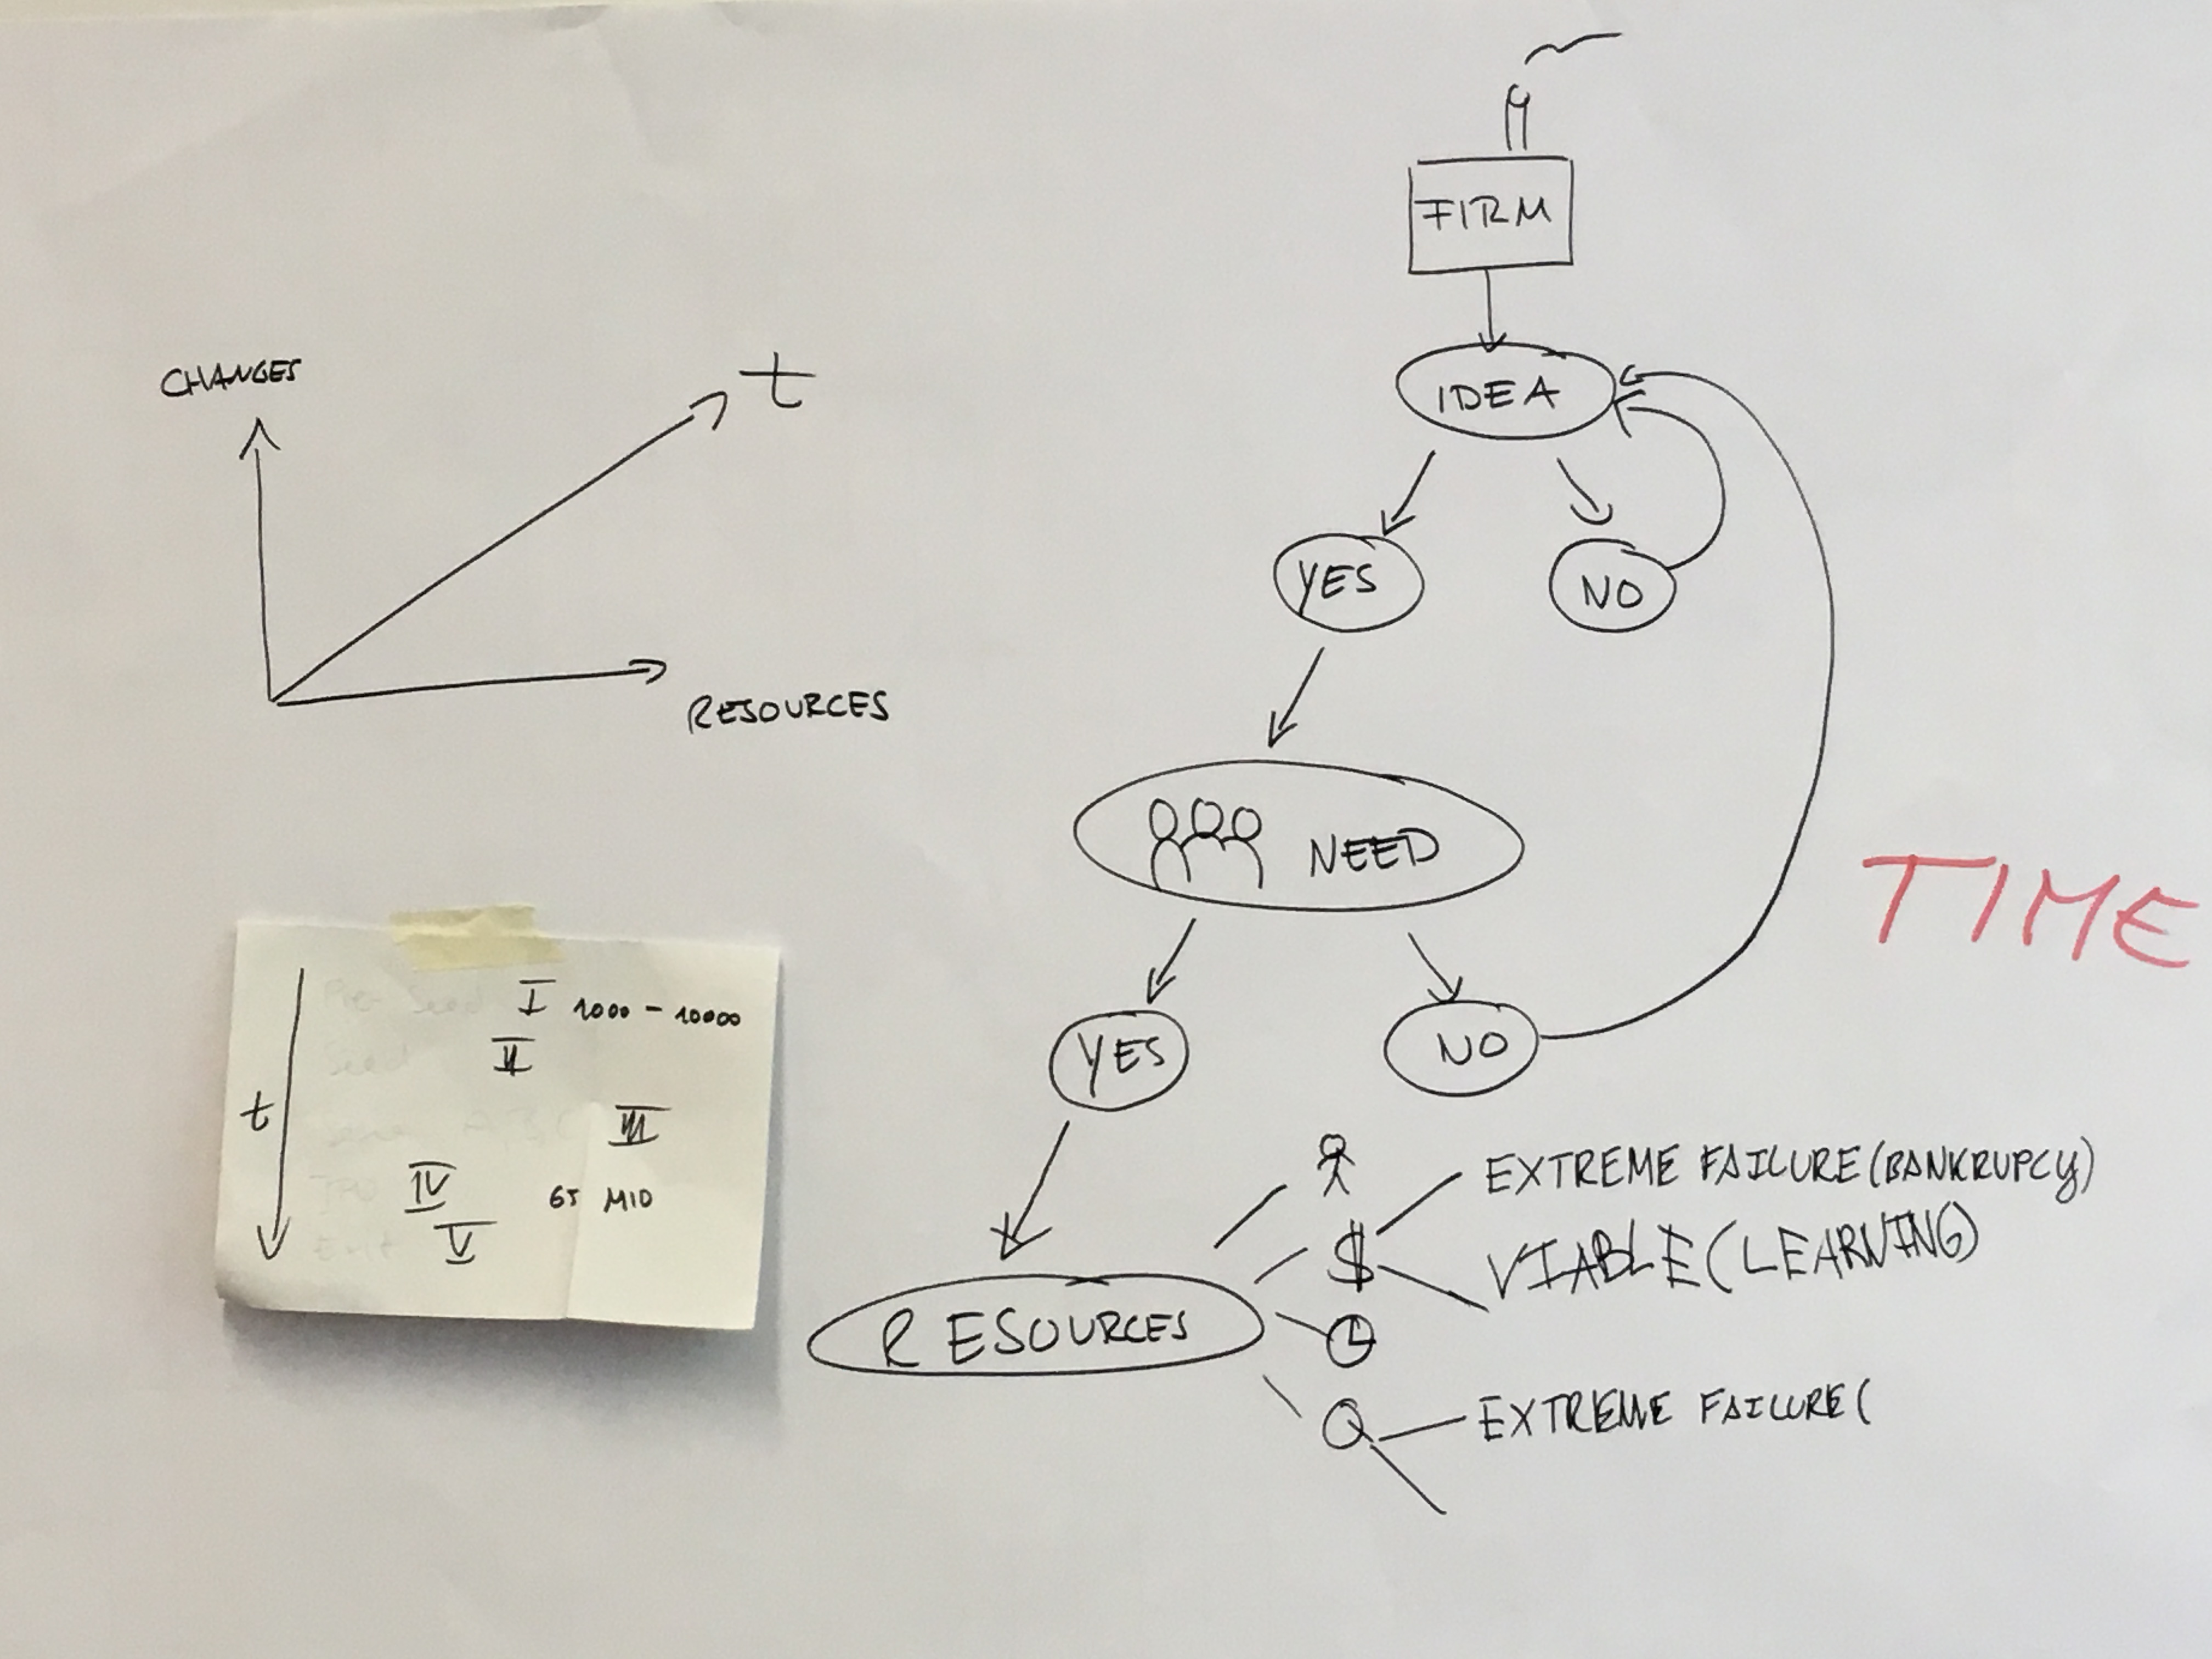 FIRM
IDEA
YES
NO
NEED
YES
NO
RESOURCES
$
EXTREME FAILURE (BANKRUPCY)
VIABLE (LEARNING)
Q
EXTREME FAILURE (
TIME
CHANGES
t
RESOURCES
t
Pre-Seed I 1000 - 10000
Seed II
A, B, C III
IPO IV 65 MIO
Exit V